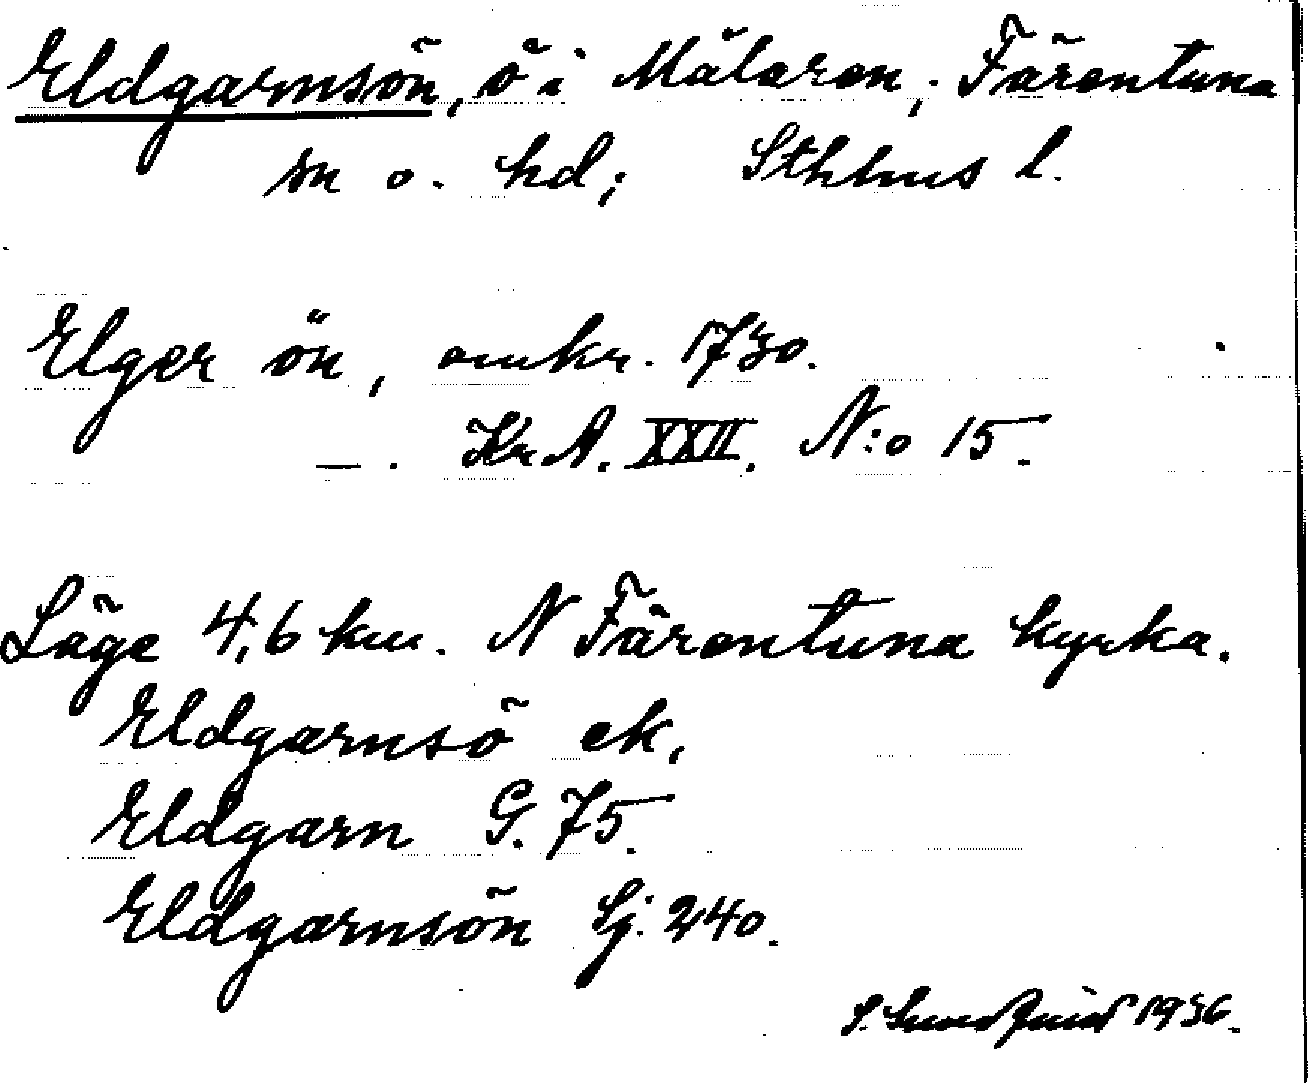 Eldgarnsön, ö i Mälaren, Färentuna
sn o. hd; Sthlms l.
Elger ön, omkr. 1730.
—. Kr A. XXII. N:o 15.
Läge 4,6 km. N Färentuna kyrka.
Eldgarnsö ek,
Eldgarn G. 75.
Eldgarnsön Sj. 240.
S. 1936.